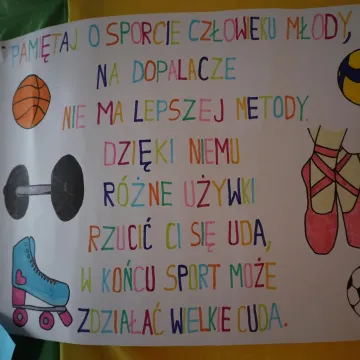 PAMIĘTAJ O SPORCIE CZŁOWIEKU MŁODY,
NA DOPALACZE
NIE MA LEPSZEJ METODY.
DZIĘKI NIEMU
RÓŻNE UŻYWKI
RZUCIĆ CI SIĘ UDA,
W KOŃCU SPORT MOŻE
ZDZIAŁAĆ WIELKIE CUDA.